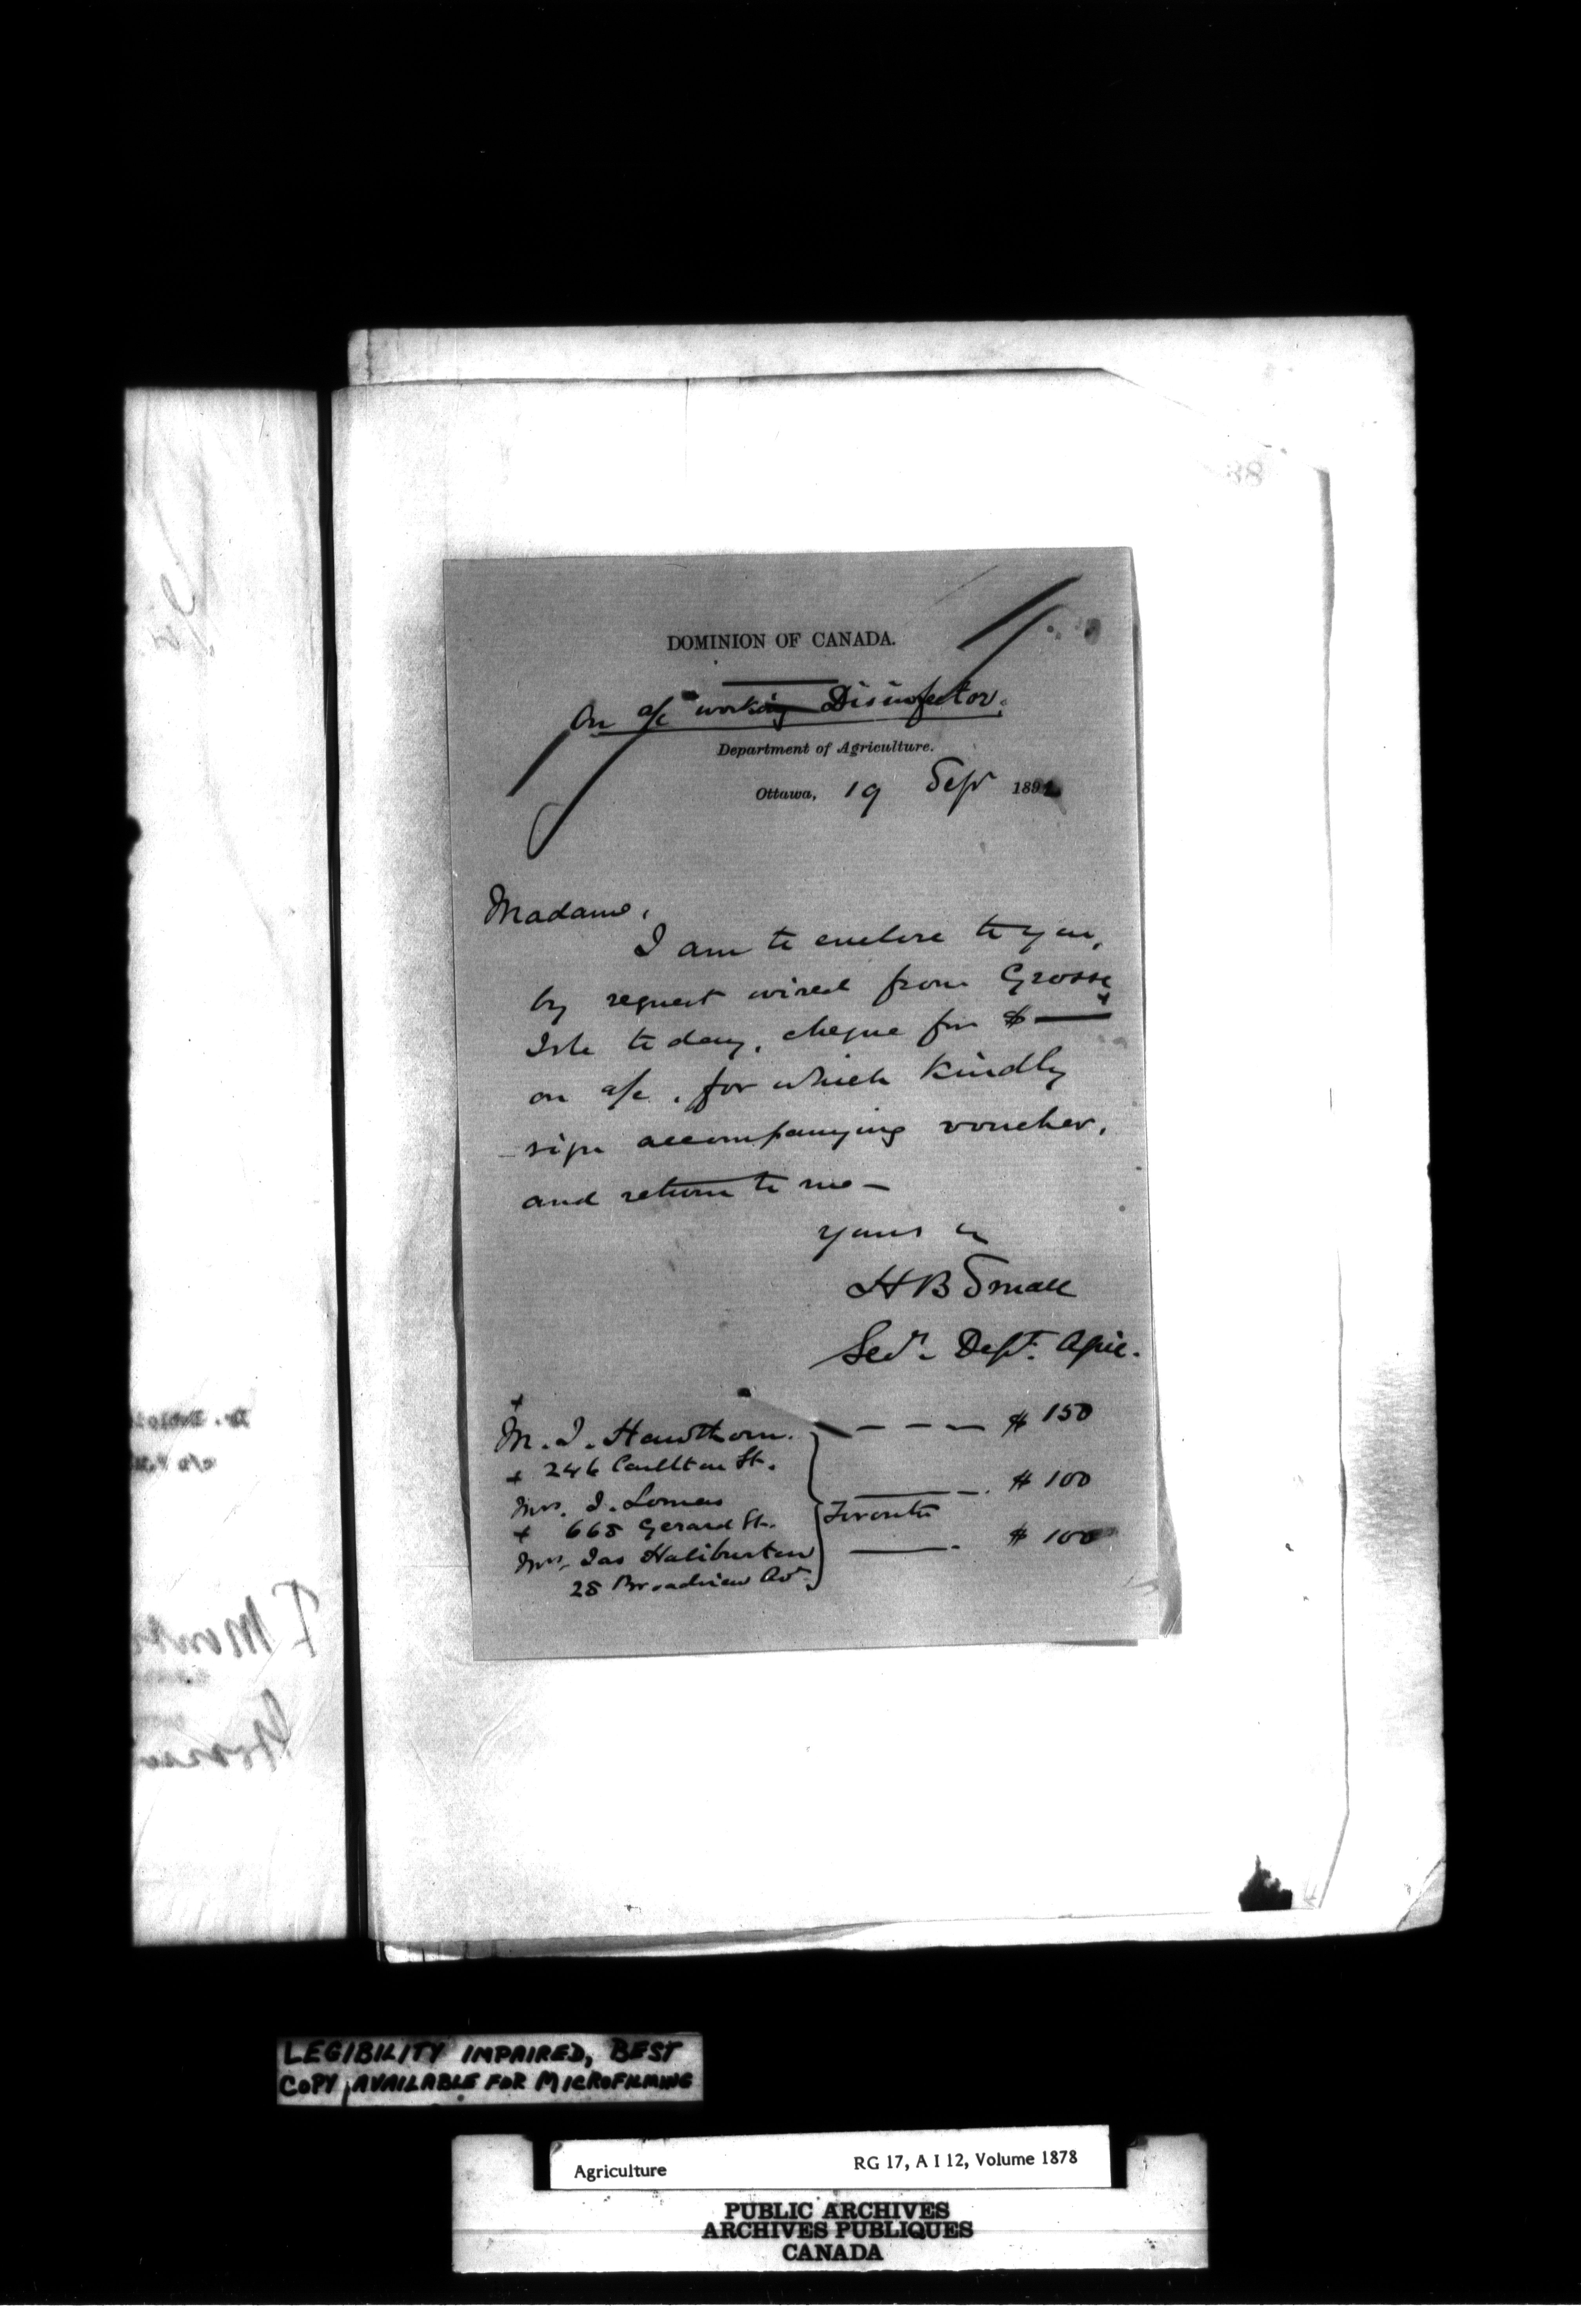 DOMINION OF CANADA.
On a/c working Disinfector.
Department of Agriculture.
Ottawa, 19 Sept 189
Madame,
I am to enclose to you,
by request wired from Grosse
Isle to day, cheque for $ —
on a/c, for which kindly
sign accompanying voucher,
and return to me —
Yours
H B Small
Secy. Dept. Agric.
M. J. Hawthorn. - - - $ 150
+ 246 Carllton St.
Mrs. J. Lomas —. $ 100
+ 668 Gerard St. Toronto
Mrs. Jas Haliburton —. $ 100
28 Broadview Av.
LEGIBILITY IMPAIRED, BEST
COPY AVAILABLE FOR MICROFILMING
Agriculture RG 17, A I 12, Volume 1878
PUBLIC ARCHIVES
ARCHIVES PUBLIQUES
CANADA